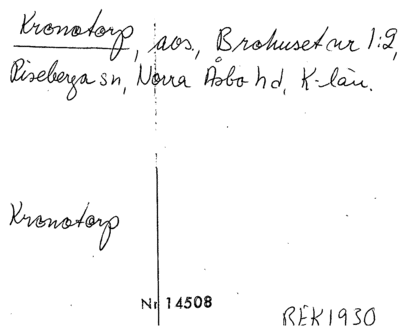 Kronotorp, avs., Brohuset nr 1:2,
Riseberga sn, Norra Åsbo hd, K-län.
Kronotorp
Nr 14508
REK1930